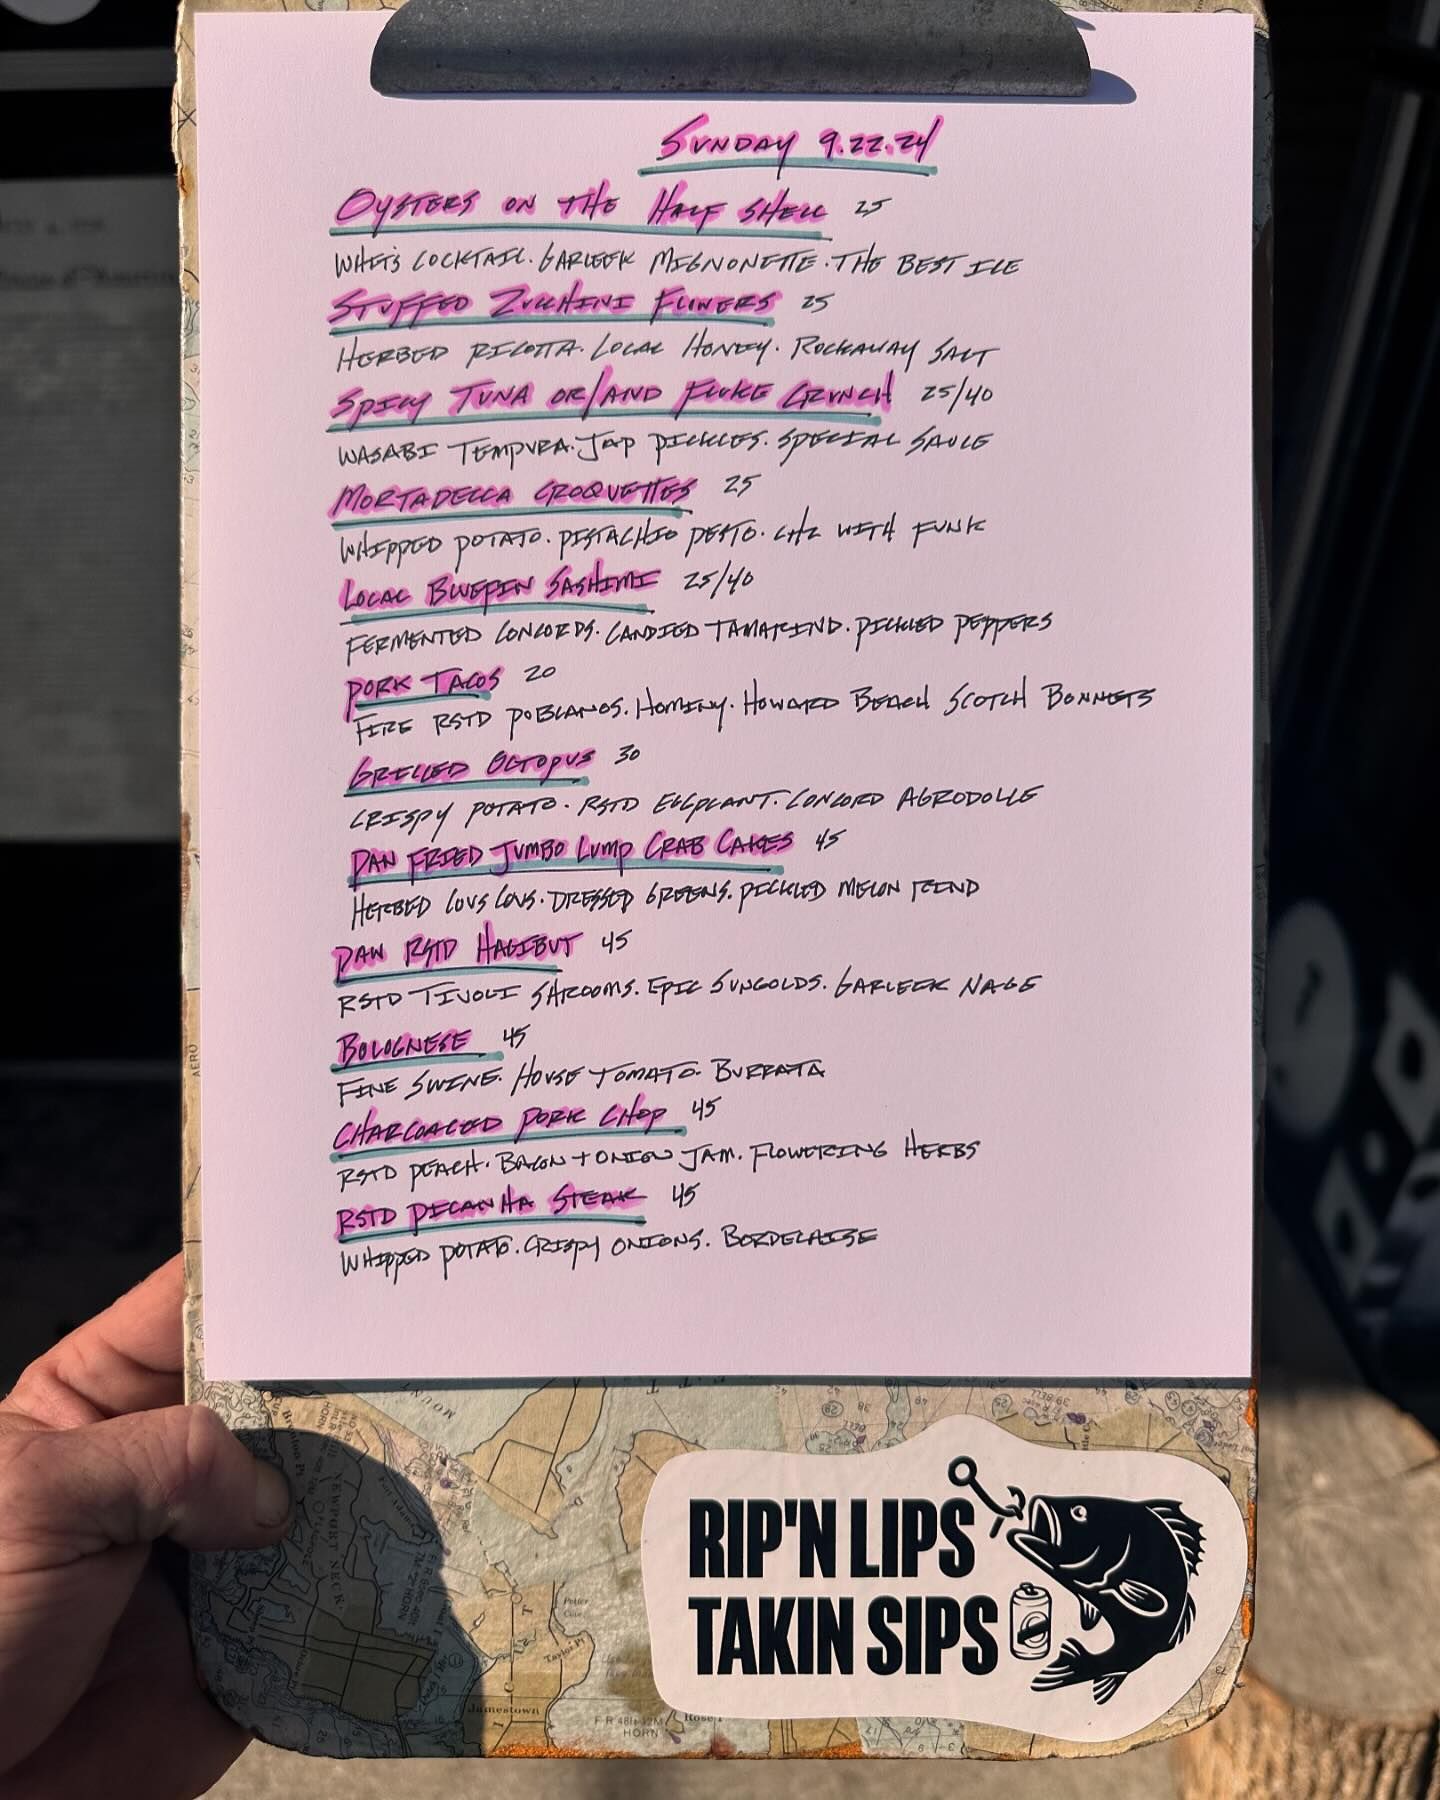 SUNDAY 9.22.24
OYSTERS ON THE HALF SHELL 25
WHIT'S COCKTAIL. GARLEEK MIGNONETTE. THE BEST ICE
STUFFED ZUCCHINI FLOWERS 25
HERBED RICOTTA. LOCAL HONEY. ROCKAWAY SALT
SPICY TUNA OR/AND FLUKE CRUNCH 25/40
WASABI TEMPURA. JAP PICKLES. SPECIAL SAUCE
MORTADELLA CROQUETTES 25
WHIPPED POTATO. PISTACHIO PESTO. CHZ WITH FUNK
LOCAL BLUEFIN SASHIMI 25/40
FERMENTED CONCORDS. CANDIED TAMARIND. PICKLED PEPPERS
PORK TACOS 20
FIRE RSTD POBLANOS. HOMINY. HOWARD BEACH SCOTCH BONNETS
GRILLED OCTOPUS 30
CRISPY POTATO. RSTD EGGPLANT. CONCORD AGRODOLCE
PAN FRIED JUMBO LUMP CRAB CAKES 45
HERBED COUS COUS. DRESSED GREENS. PICKLED MELON RIND
PAN RSTD HALIBUT 45
RSTD TIVOLI SHROOMS. EPIC SUNGOLDS. GARLEEK NAGE
BOLOGNESE 45
FINE SWINE. HOUSE TOMATO. BURRATA
CHARCOALED PORK CHOP 45
RSTD PEACH. BACON + ONION JAM. FLOWERING HERBS
RSTD PICANHA STEAK 45
WHIPPED POTATO. CRISPY ONIONS. BORDELAISE
RIP'N LIPS
TAKIN SIPS
Jamestown
NEWPORT NECK
Taylor Pt
Potter Cove
HORN